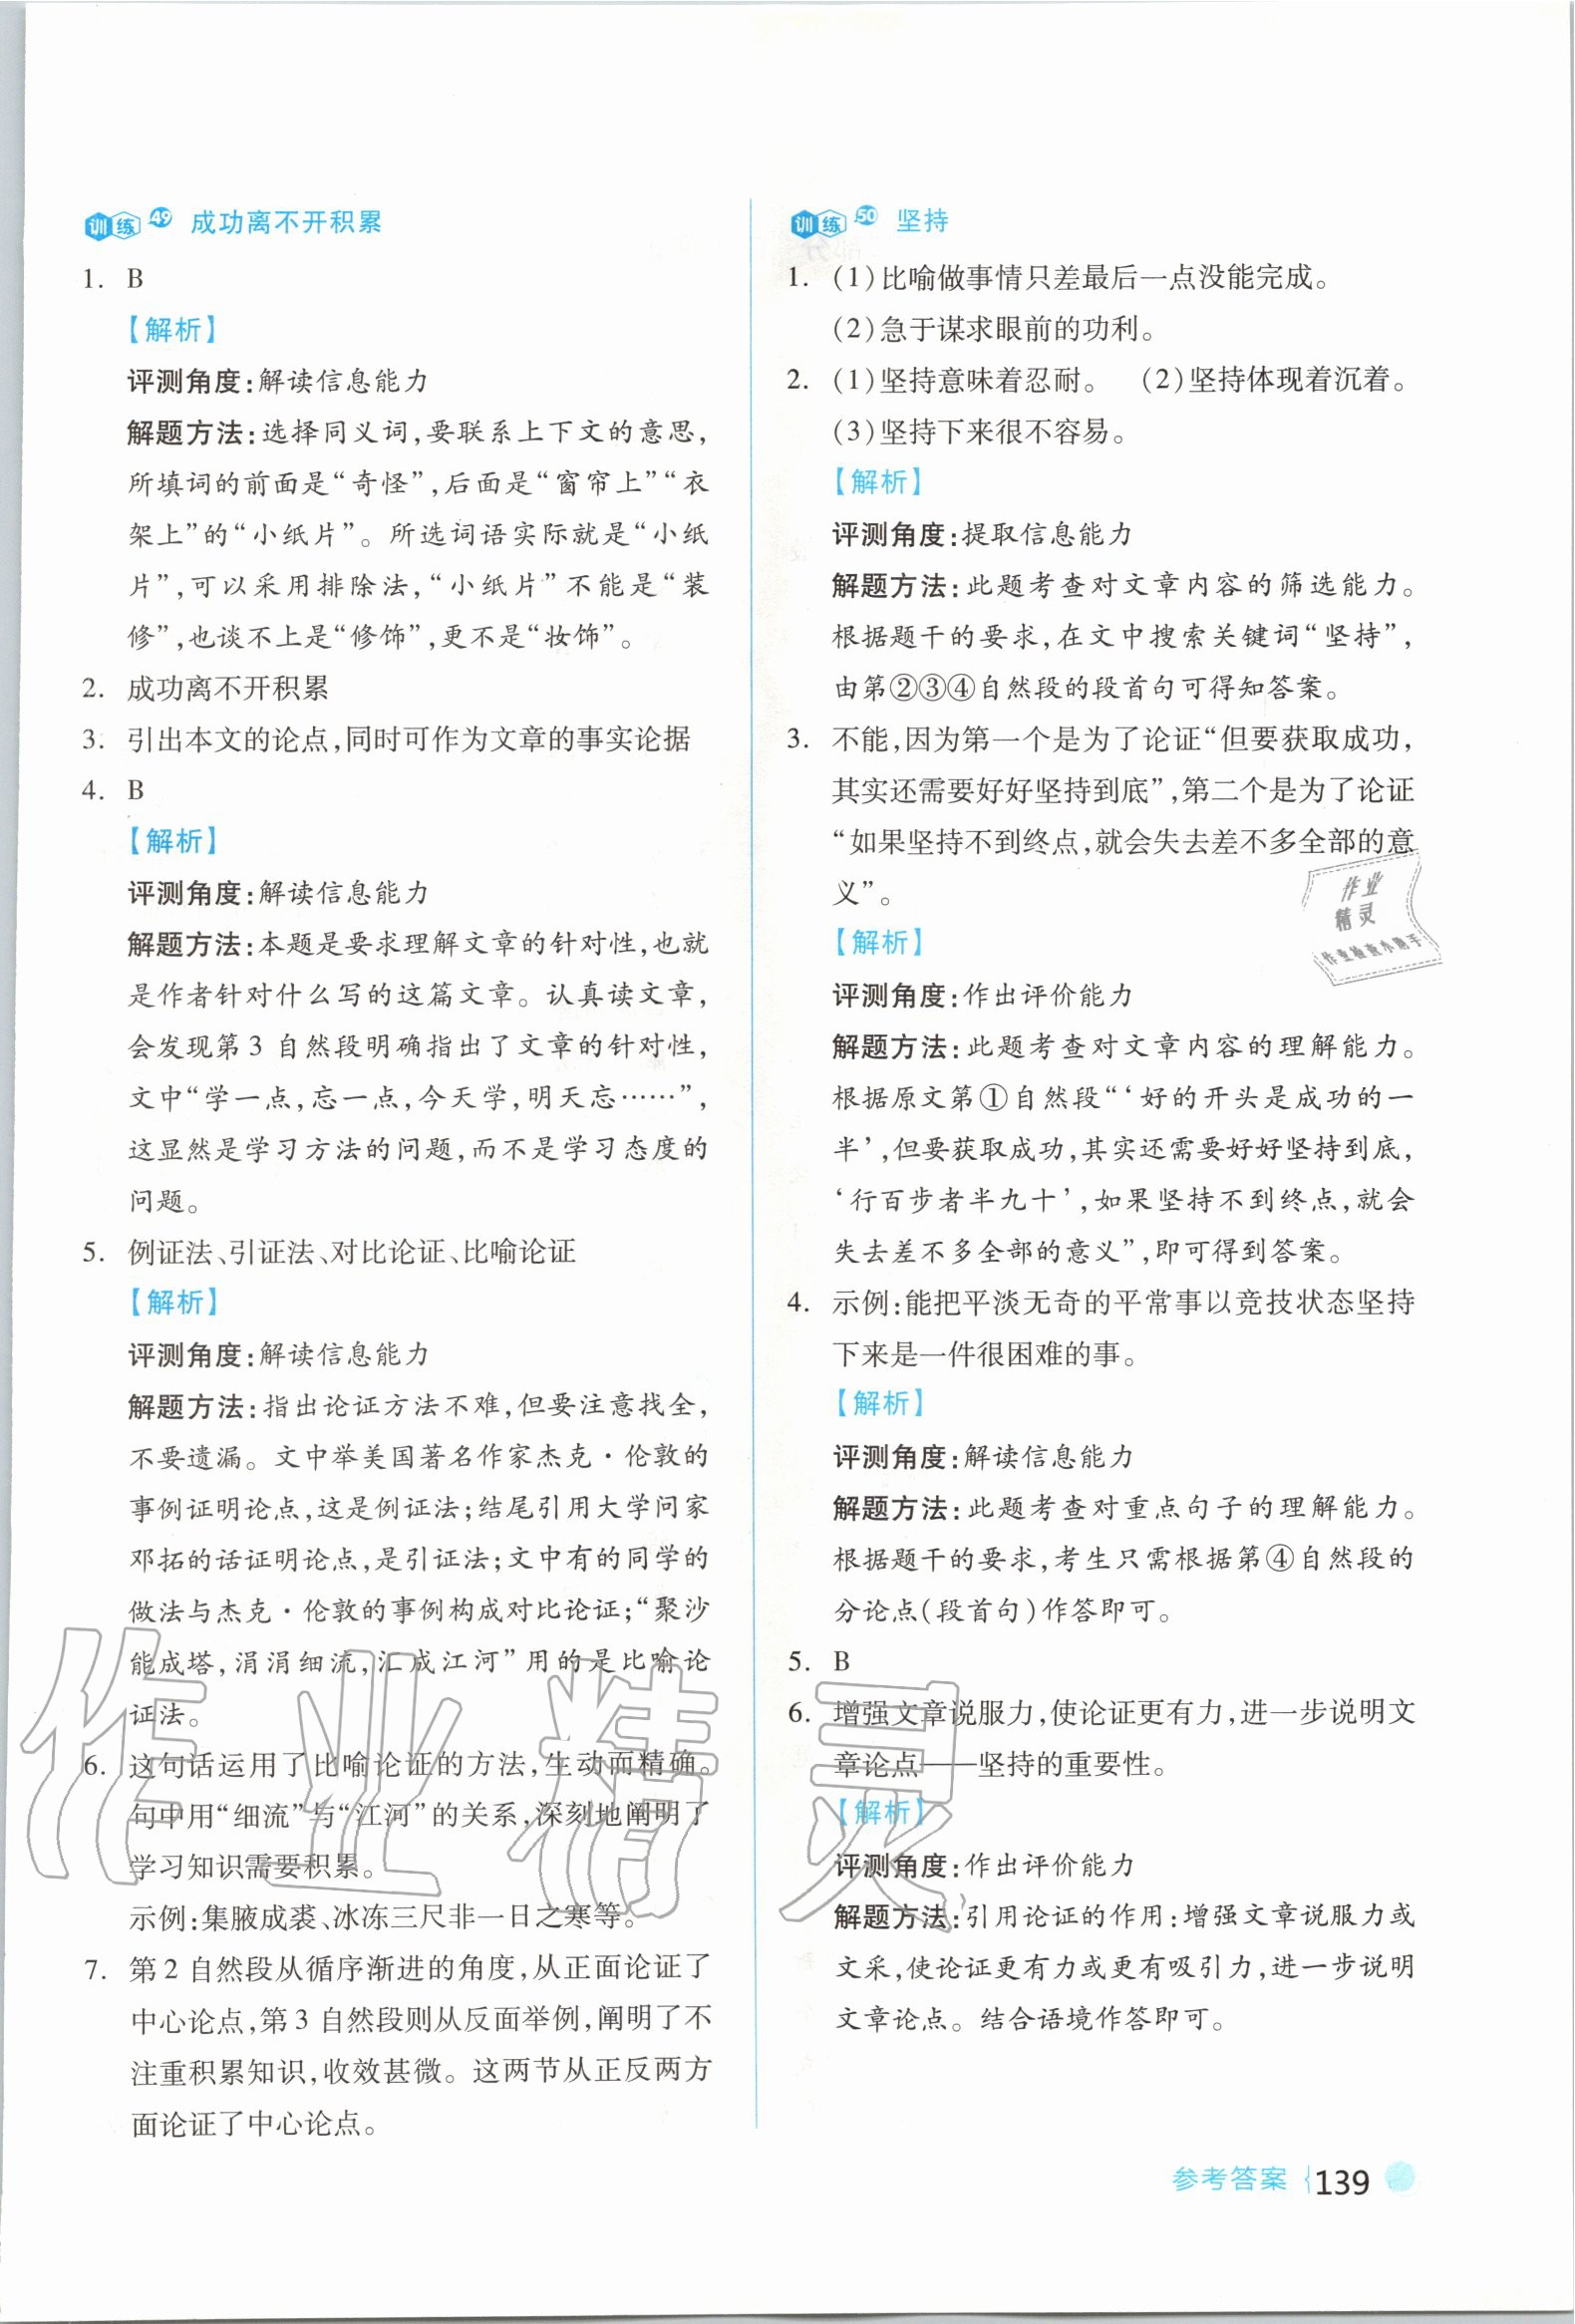 训练 49 成功离不开积累
1. B
【解析】
评测角度:解读信息能力
解题方法:选择同义词,要联系上下文的意思,
所填词的前面是“奇怪”,后面是“窗帘上”“衣
架上”的“小纸片”。所选词语实际就是“小纸
片”,可以采用排除法,“小纸片”不能是“装
修”,也谈不上是“修饰”,更不是“妆饰”。
2. 成功离不开积累
3. 引出本文的论点,同时可作为文章的事实论据
4. B
【解析】
评测角度:解读信息能力
解题方法:本题是要求理解文章的针对性,也就
是作者针对什么写的这篇文章。认真读文章,
会发现第 3 自然段明确指出了文章的针对性,
文中“学一点,忘一点,今天学,明天忘……”,
这显然是学习方法的问题,而不是学习态度的
问题。
5. 例证法、引证法、对比论证、比喻论证
【解析】
评测角度:解读信息能力
解题方法:指出论证方法不难,但要注意找全,
不要遗漏。文中举美国著名作家杰克·伦敦的
事例证明论点,这是例证法;结尾引用大学问家
邓拓的话证明论点,是引证法;文中有的同学的
做法与杰克·伦敦的事例构成对比论证;“聚沙
能成塔,涓涓细流,汇成江河”用的是比喻论
证法。
6. 这句话运用了比喻论证的方法,生动而精确。
句中用“细流”与“江河”的关系,深刻地阐明了
学习知识需要积累。
示例:集腋成裘、冰冻三尺非一日之寒等。
7. 第 2 自然段从循序渐进的角度,从正面论证了
中心论点,第 3 自然段则从反面举例,阐明了不
注重积累知识,收效甚微。这两节从正反两方
面论证了中心论点。
训练 50 坚持
1. (1)比喻做事情只差最后一点没能完成。
(2)急于谋求眼前的功利。
2. (1)坚持意味着忍耐。 (2)坚持体现着沉着。
(3)坚持下来很不容易。
【解析】
评测角度:提取信息能力
解题方法:此题考查对文章内容的筛选能力。
根据题干的要求,在文中搜索关键词“坚持”,
由第②③④自然段的段首句可得知答案。
3. 不能,因为第一个是为了论证“但要获取成功,
其实还需要好好坚持到底”,第二个是为了论证
“如果坚持不到终点,就会失去差不多全部的意
义”。
【解析】
评测角度:作出评价能力
解题方法:此题考查对文章内容的理解能力。
根据原文第①自然段“‘好的开头是成功的一
半’,但要获取成功,其实还需要好好坚持到底,
‘行百步者半九十’,如果坚持不到终点,就会
失去差不多全部的意义”,即可得到答案。
4. 示例:能把平淡无奇的平常事以竞技状态坚持
下来是一件很困难的事。
【解析】
评测角度:解读信息能力
解题方法:此题考查对重点句子的理解能力。
根据题干的要求,考生只需根据第④自然段的
分论点(段首句)作答即可。
5. B
6. 增强文章说服力,使论证更有力,进一步说明文
章论点——坚持的重要性。
【解析】
评测角度:作出评价能力
解题方法:引用论证的作用:增强文章说服力或
文采,使论证更有力或更有吸引力,进一步说明
文章论点。结合语境作答即可。
作业
精灵
作业检查小助手
作业精灵
参考答案 139